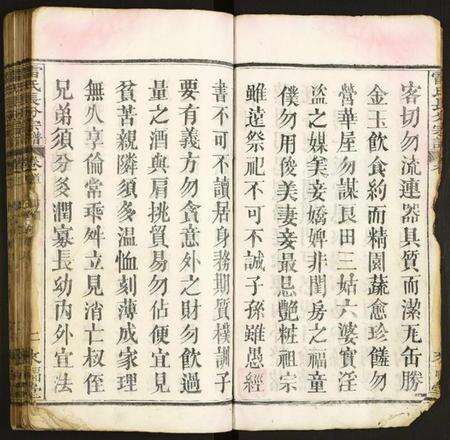 客切勿流連器具質而潔瓦缶勝
金玉飲食約而精園蔬愈珍饈勿
營華屋勿謀良田三姑六婆實淫
盜之媒美妾嬌婢非閨房之福童
僕勿用俊美妻妾最忌艷粧祖宗
雖遠祭祀不可不誠子孫雖愚經
書不可不讀居身務期質樸訓子
要有義方勿貪意外之財勿飲過
量之酒與肩挑貿易勿佔便宜見
貧苦親隣須多溫恤刻薄成家理
無久享倫常乖舛立見消亡叔侄
兄弟須分多潤寡長幼内外宜法